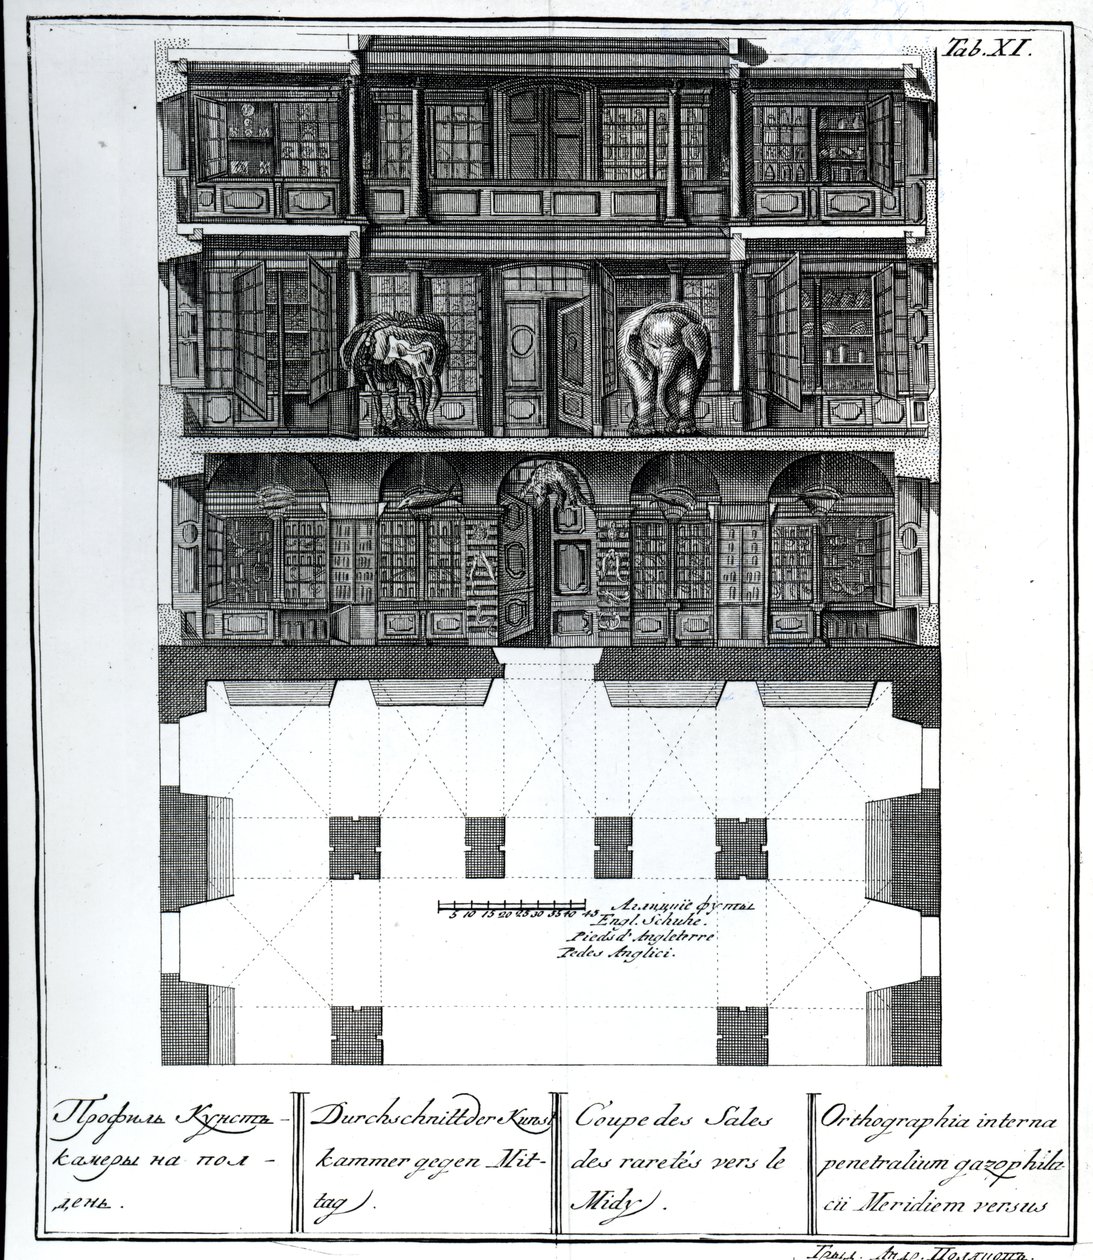 Tab. XI.
5 10 15 20 25 30 35 40 45
Аглицкіе футы
Engl. Schuhe.
Pieds d'Angleterre
Pedes Anglici.
Профиль Кунстъ-
камеры на пол-
день.
Durchschnitt der Kunst
kammer gegen Mit-
tag.
Coupe des Sales
des raretés vers le
Midy.
Orthographia interna
penetralium gazophila-
cii Meridiem versus
Грыд. Андр. Поляковъ.